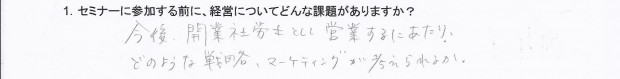 1. セミナーに参加する前に、経営についてどんな課題がありますか？
今後、開業社労士として営業するにあたり、
どのような戦略、マーケティングが考えられるか。